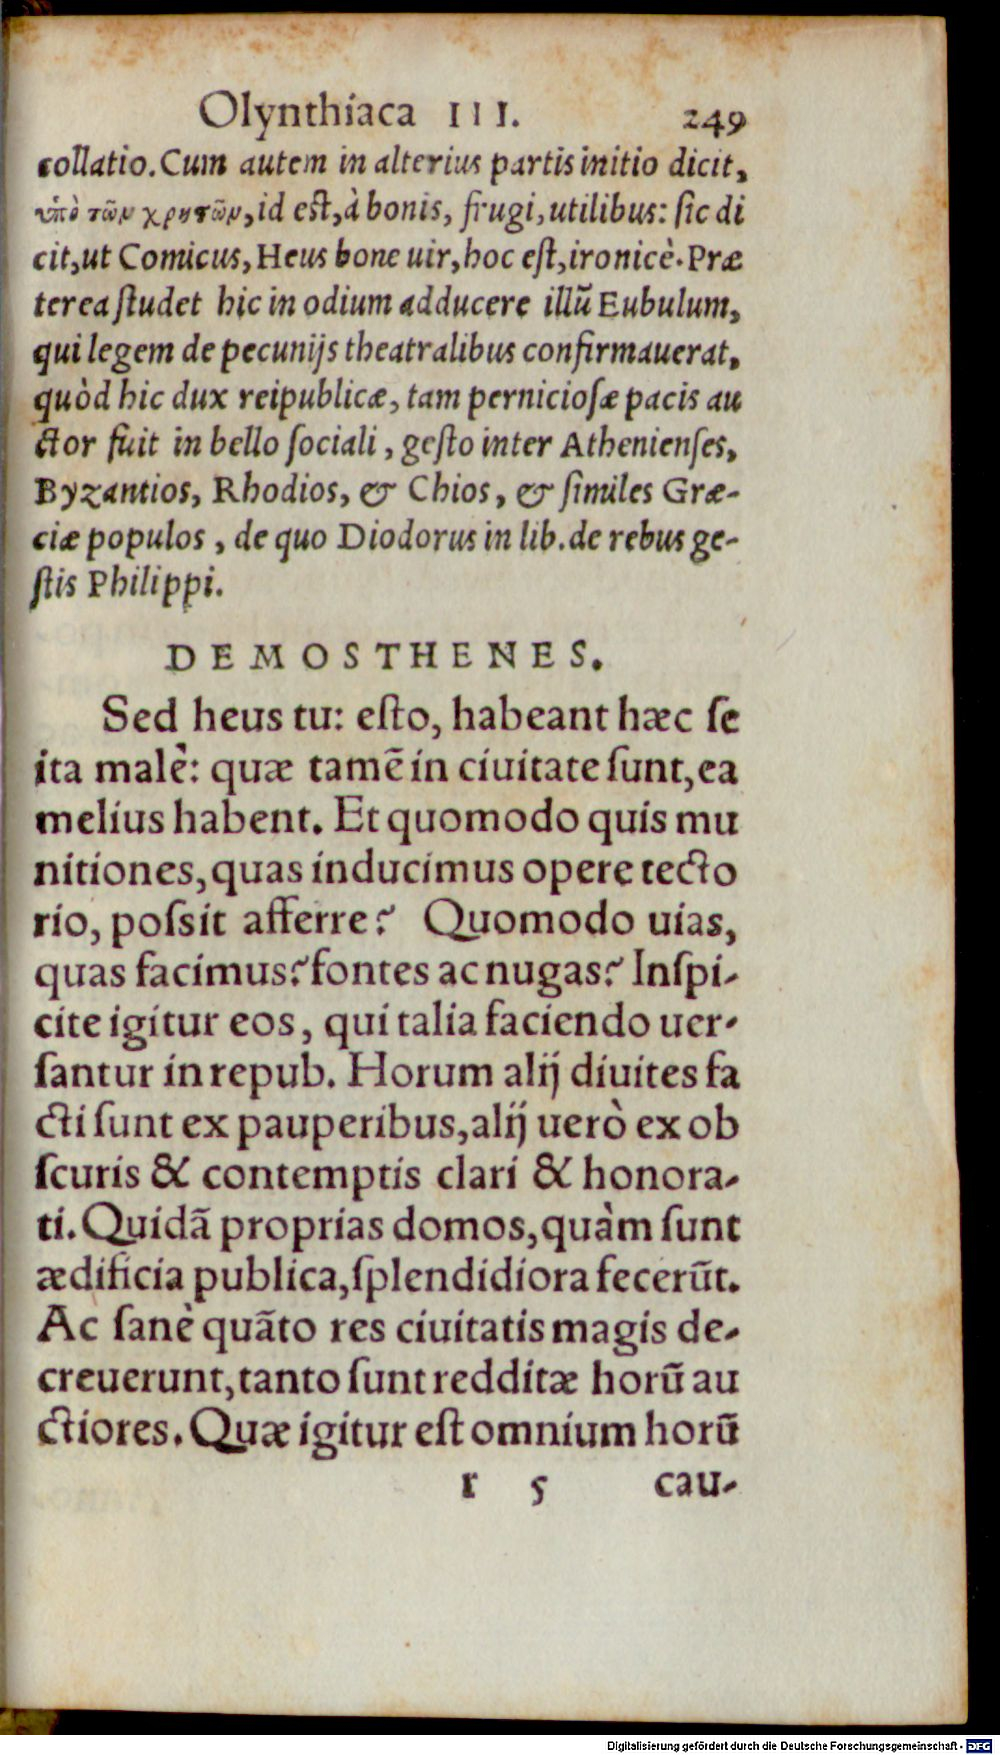 Olynthiaca III. 249
collatio. Cum autem in alterius partis initio dicit,
ὑπὸ τῶν χρηστῶν, id est, à bonis, frugi, utilibus: sic di
cit, ut Comicus, Heus bone uir, hoc est, ironicè. Præ
terea studet hic in odium adducere illũ Eubulum,
qui legem de pecunijs theatralibus confirmauerat,
quòd hic dux reipublicæ, tam perniciosæ pacis au
ctor fuit in bello sociali, gesto inter Athenienses,
Byzantios, Rhodios, & Chios, & similes Græ-
ciæ populos, de quo Diodorus in lib. de rebus ge-
stis Philippi.
DEMOSTHENES.
Sed heus tu: esto, habeant hæc se
ita malè: quæ tamẽ in ciuitate sunt, ea
melius habent. Et quomodo quis mu
nitiones, quas inducimus opere tecto
rio, possit afferre? Quomodo uias,
quas facimus? fontes ac nugas? Inspi-
cite igitur eos, qui talia faciendo uer-
santur in repub. Horum alij diuites fa
cti sunt ex pauperibus, alij uerò ex ob
scuris & contemptis clari & honora-
ti. Quidã proprias domos, quàm sunt
ædificia publica, splendidiora fecerũt.
Ac sanè quãto res ciuitatis magis de-
creuerunt, tanto sunt redditæ horũ au
ctiores. Quæ igitur est omnium horũ
r 5 cau-
Digitalisierung gefördert durch die Deutsche Forschungsgemeinschaft - DFG